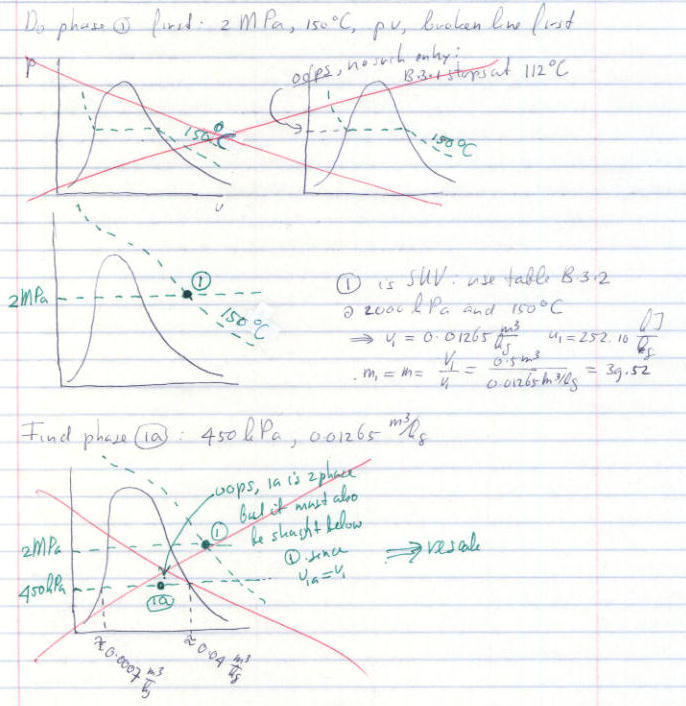 Do phase ① first: 2 MPa, 150°C, pv, broken line first
oops, no such entry:
B.3.1 stops at 112°C
P
150°C
150°C
v
2MPa
①
150°C
① is SHV: use table B.3.2
@ 2000 kPa and 150°C
⇒ v₁ = 0.01265 m³/kg u₁ = 252.10 kJ/kg
m₁ = m = V₁/v₁ = 0.5 m³/0.01265 m³/kg = 39.52
Find phase ①a: 450 kPa, 0.01265 m³/kg
oops, 1a is 2 phase
but it must also
be straight below
① since
v₁ₐ = v₁
⇒ rescale
①
2MPa
450kPa
①a
≈ 0.0007 m³/kg
≈ 0.04 m³/kg